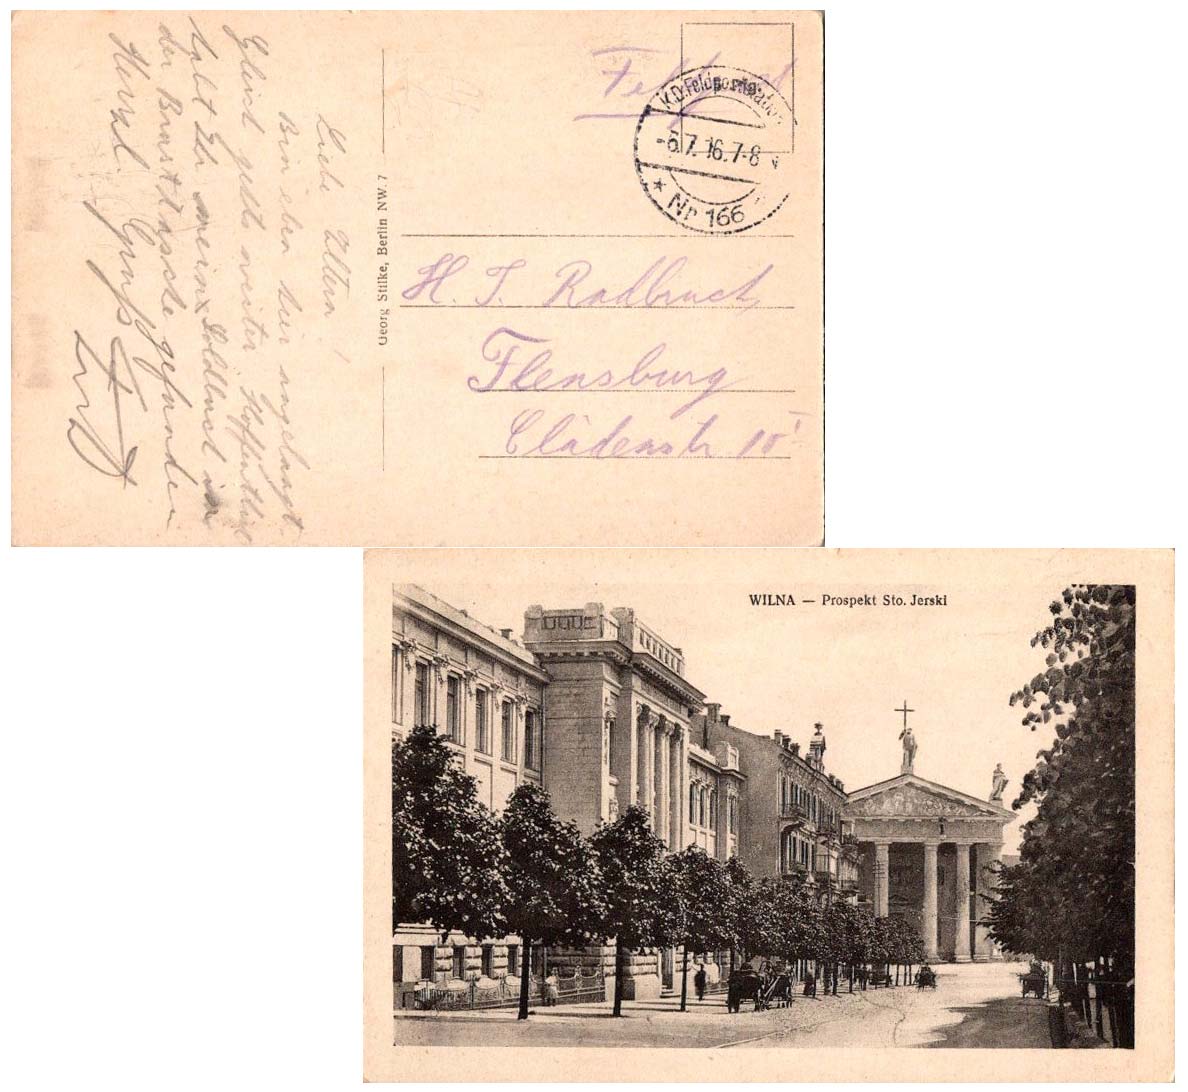 Feldpost
K.D. Feldpoststation
-5.7.16.7-8
* Nr. 166
H. J. Radbruch,
Flensburg
Clädenstr 10 I
Georg Stilke, Berlin NW. 7
Liebe Eltern!
Bin eben hier angelangt.
Gleich geht's weiter. Hoffentlich
habt Ihr meine in
der Brusttasche gefunden
Herzl. Gruß
WILNA — Prospekt Sto. Jerski